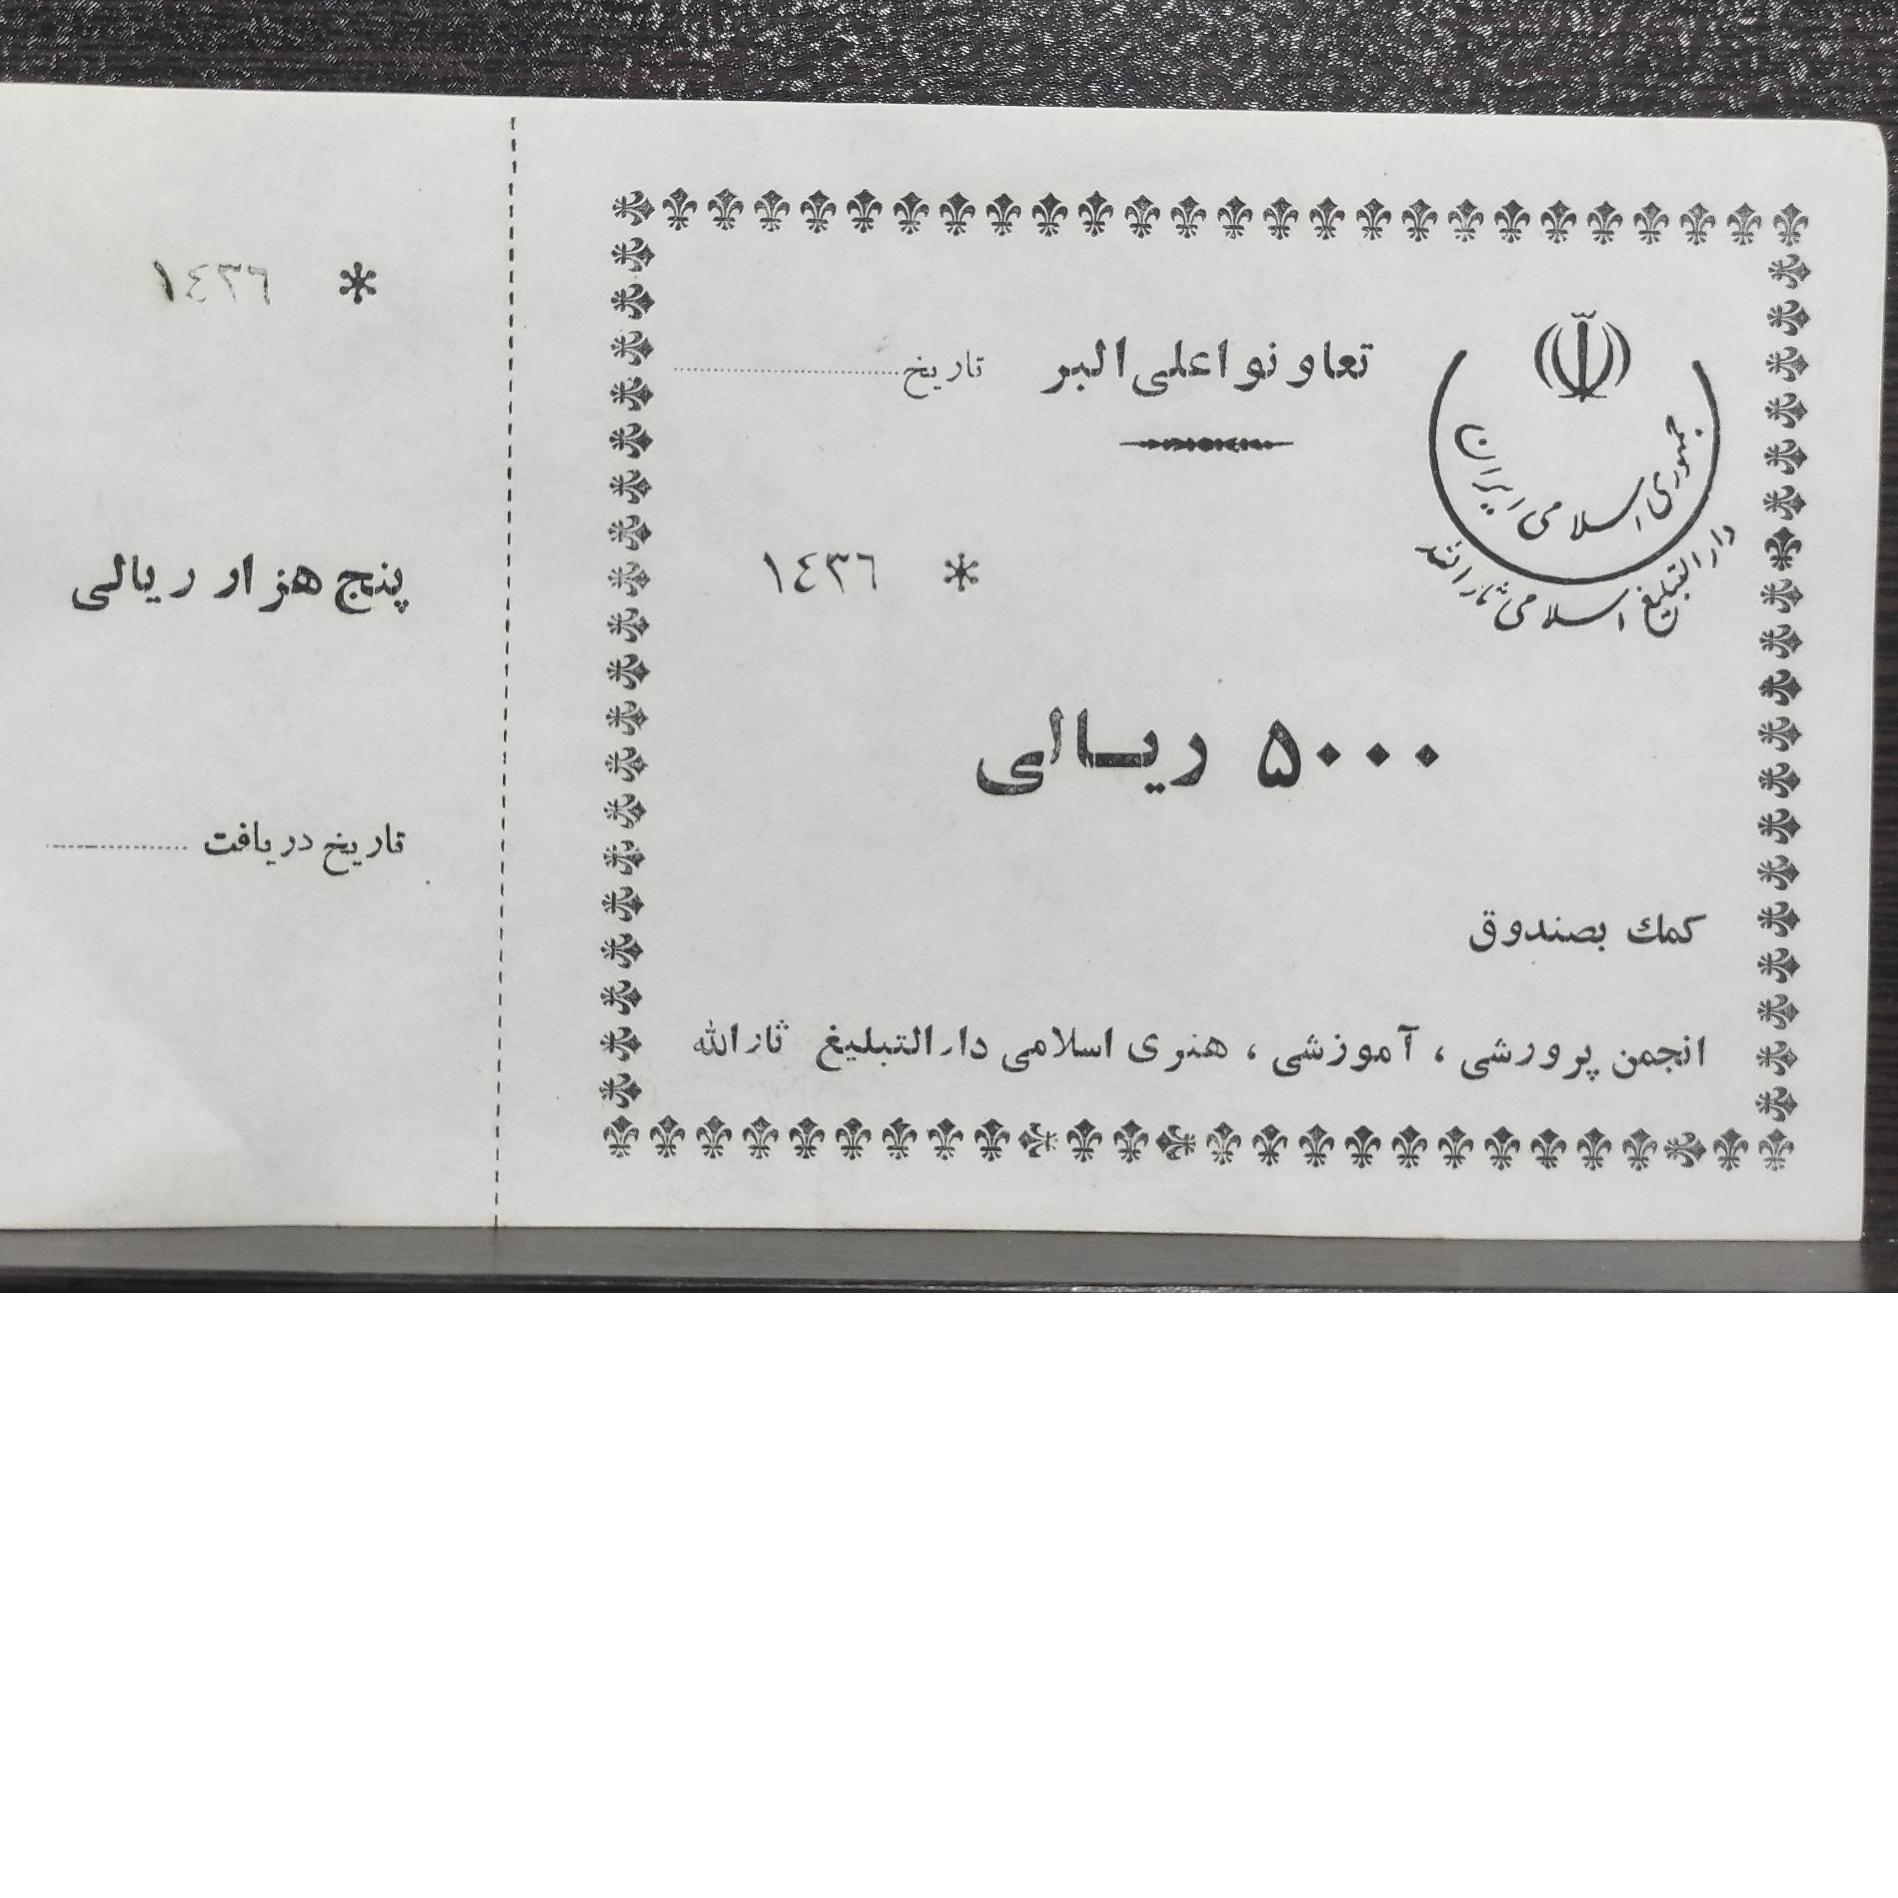 جمهوری اسلامی ایران
دارالتبلیغ اسلامی ثارالله
تعاونوا علی البر
تاریخ
* ١٤٣٦
۵۰۰۰ ریالی
کمك بصندوق
انجمن پرورشی ، آموزشی ، هنری اسلامی دارالتبلیغ ثارالله
* ١٤٣٦
پنج هزار ریالی
تاریخ دریافت